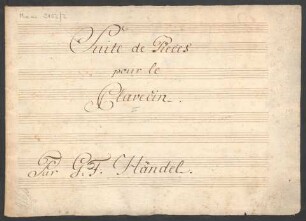 Suite de Pieces
pour le
Clavecin.
Par G. F. Händel.